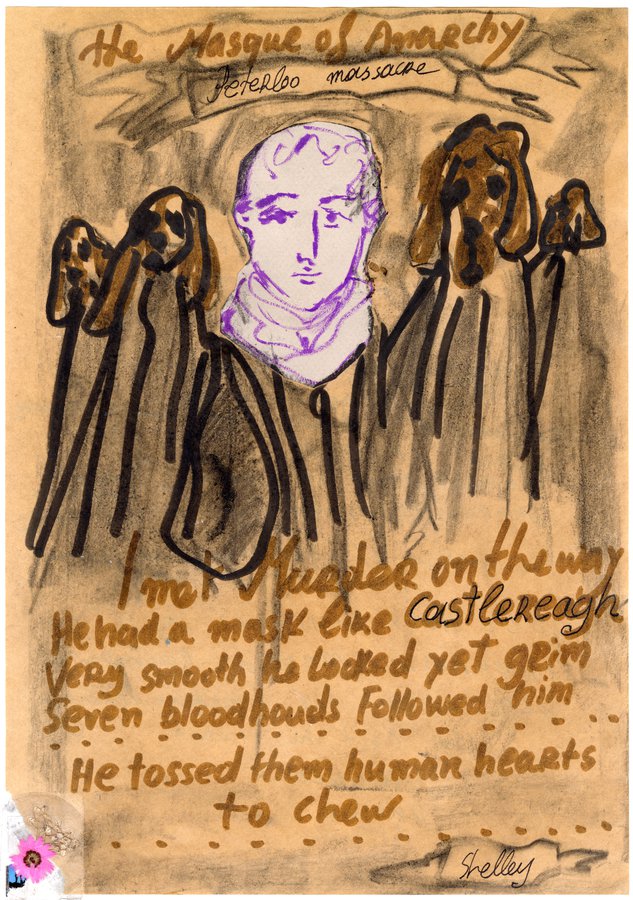 the Masque of Anarchy
Peterloo massacre
I met Murder on the way
He had a mask like Castlereagh
Very smooth he looked yet grim
Seven bloodhouds Followed him
He tossed them human hearts
to chew
Shelley